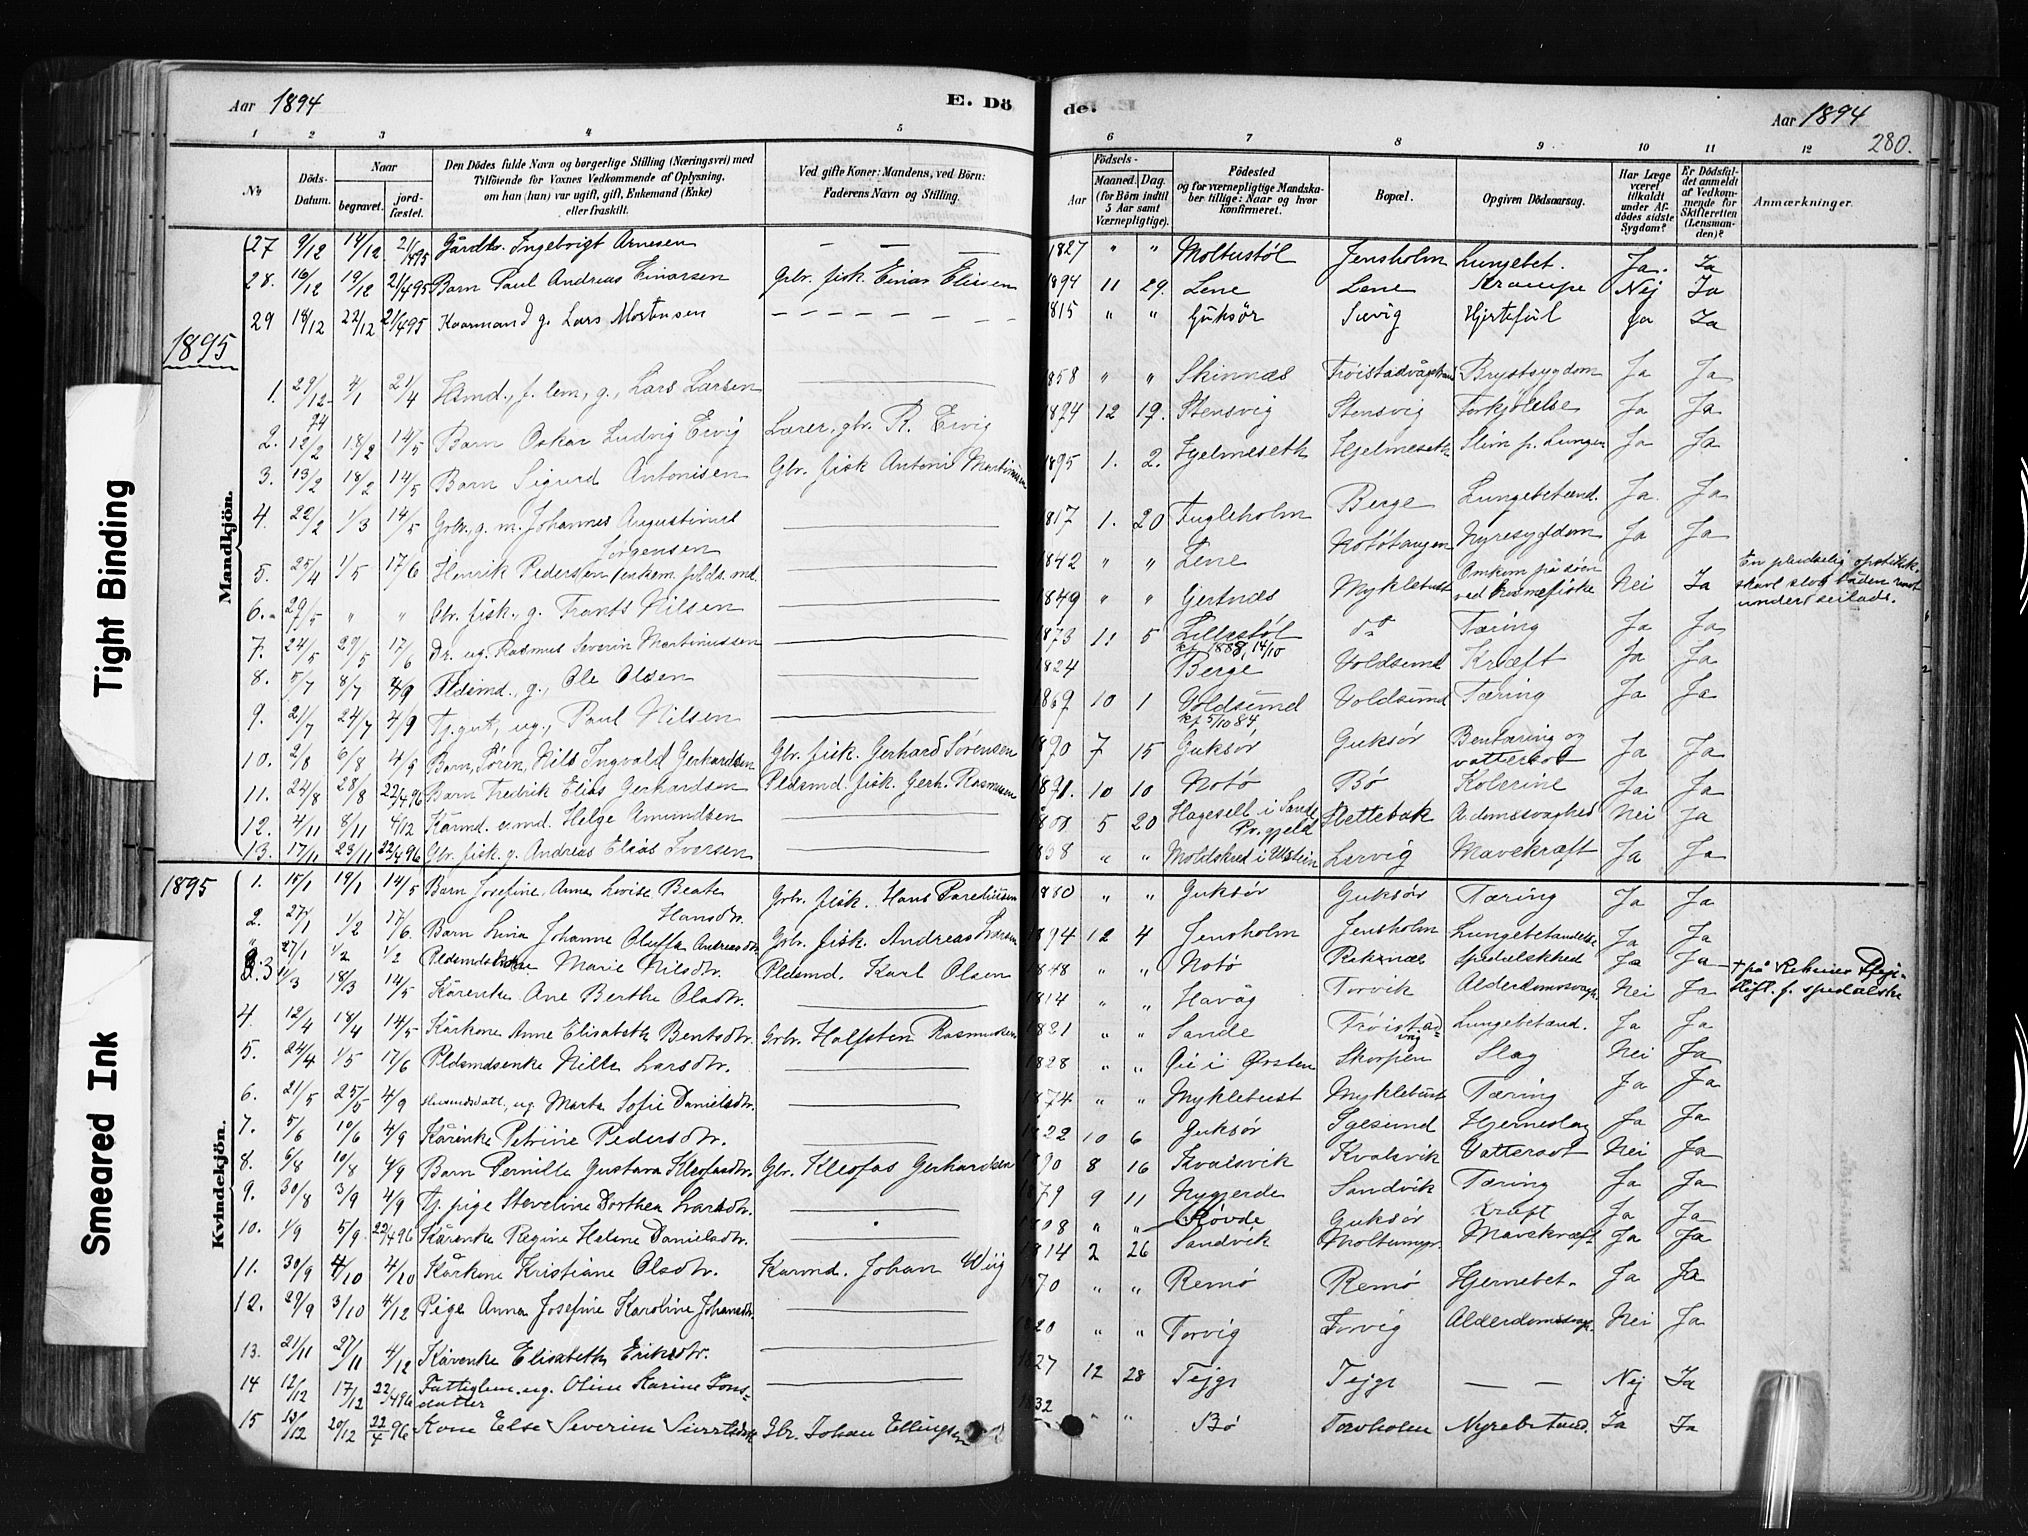 Aar 1894
E. Dö
de.
Aar 1894
280.
1 2 3 4 5 6 7 8 9 10 11 12
No
Döds-Datum.
Naar
begravet.
jord-fæstet.
Den Dödes fulde Navn og borgerlige Stilling (Næringsvei) med
Tilföiende for Voxnes Vedkommende af Oplysning,
om han (hun) var ugift, gift, Enkemand (Enke)
eller fraskilt.
Ved gifte Koner: Mandens, ved Börn:
Faderens Navn og Stilling.
Födsels-
Aar
Maaned.
Dag.
(for Börn indtil
5 Aar samt
Værnepligtige).
Födested
og for værnepligtige Mandska-
ber tillige: Naar og hvor
konfirmeret.
Bopæl.
Opgiven Dödsaarsag.
Har Læge
været
tilkaldt
under Af-
dödes sidste
Sygdom?
Er Dödsfal-
det anmeldt
af Vedkom-
mende for
Skifteretten
(Lensman-
den)?
Anmærkninger.
Mandkjön.
27 9/12 14/12 21/4 95 Gårdbr. Ingebrigt Arnesen — — — 1827 " " Moltustøl Jensholm Lungebet. Ja. Ja
28. 16/12 19/12 21/4 95 Barn Paul Andreas Einarsen Gbr. fisk. Einar Eliesen 1894 11 29. Lene Lene Krampe Nej Ja
29 18/12 22/12 21/4 95 Kaarmand g. Lars Mortensen 1815 " " Guksør Sævig Hjertefeil Ja Ja
1895
1. 29/12 94 4/1 21/4 Hsmd., f. lem, g., Lars Larsen 1858 " " Skinnes Brystsygdom Ja Ja
2. 12/2 18/2 14/5 Barn Oskar Ludvig Ervig Lærer, gbr. R. Ervig 1894 12 19. Stensvig Stensvig Forkjølelse Ja Ja
3. 13/2 18/2 14/5 Barn Sigurd Antonisen Gbr. fisk Antoni Martinussen 1895 1. 2. Hjelmeseth Hjelmeseth Slim p. Lungen Ja Ja
4. 22/2 1/3 14/5 Grbr., g. m. Johannes Augustinus Jørgensen 1817 1. 20 Fugleholm Berge Lungebetænd. Ja. Ja
5. 25/4 1/5 17/6 Henrik Pedersen enkem. plds. md. 1842 " " Lene Notøtangen Nyresygdom Ja Ja
6. 29/5 " " Gbr. fisk., g. Frants Nilsen 1849 " " Gertnes Myklebust Omkom på søen ved Nei Ja
En pludselig
båden
under seilads.
7. 24/5 29/5 17/6 Dr. ug. Rasmus Severin Martinussen 1873 11 5 Lillestøl kf 1888, 14/10 do Tæring Ja Ja
8. 5/7 8/7 4/9 Pldsmd., g., Ole Olsen 1824 Berge Voldsund Kræft Ja Ja
9. 21/7 24/7 4/9 Tj.gut, ug., Paul Nilsen 1867 10 1 Voldsund kf 5/10 84, Voldsund Tæring Ja Ja
10. 2/8 6/8 4/9 Barn, Søren, Nils Ingvald Gerhardsen Gbr. fisk. Gerhard Sørensen 1890 7 15 Guksør Guksør Bentæring og vattersot Ja Ja
11. 24/8 28/8 22/4 96 Barn Fredrik Elias Gerhardsen Pldsmd. fisk. Gerh. Rasmussen 10 10 Notø Bø Kolerine Ja Ja
12. 4/11 8/11 4/12 Kårmd. e.md. Helge Amundsen 5 20 i Sande Pr.gjeld Slettebak Nei Ja
13. 17/11 23/11 22/4 96 Gbr. fisk. g. Andreas Elias Iversen " " i Ulstein Larvig Mavekræft Ja Ja
Kvindekjön.
1895
1. 15/1 19/1 14/5 Barn Josefine Anna Lovise Beate Hansdtr. Grbr. fisk. Hans 1880 " " Guksør Guksør Tæring Ja Ja
2. 27/1 1/2 17/6. Barn Lina Johanne Oluffa Andreasdtr. Grbr. fisk. Andreas Larsen 1894 12 4 Jensholm Jensholm Lungebetændelse Ja Ja
27/1 1/2 1/2 Marie Nilsdtr. Pldsmd. Karl Olsen 1848 " " Notø Reknæs Spedalskhed Ja Ja
† på Reknes Pleje-
stift. f. spedalske
3 11/3 18/3 14/5 Kårenke Ane Berthe Olsdtr. 1814 " " Havåg Torvik Alderdomssvagh. Nei Ja
4. 12/4 18/4 14/5 Kårkone Anne Elisabeth Bentsdtr. Grbr. Halfsten Rasmussen 1821 " " Sande Frøistadvåg Lungebetænd. Ja Ja
5. 24/4 1/5 17/6 Pldsmdsenke Nille Larsdtr. 1828 " " i Ørsten Skorpen Slag Nei Ja
6. 21/5 25/5 4/9 ug. Marte Sofie Danielsdtr. 1874 " " Myklebust Myklebust Tæring Ja Ja
7. 5/6 10/6 4/9 Kårenke Petrine Pedersdtr. 1822 10 6 Guksør Igesund Hjerneslag Ja Ja
8. 6/8 10/8 4/9 Barn Pernille Gustava Kleofasdtr. Gbr. Kleofas Gerhardsen 1890 8 16 Kvalsvik Kvalsvik Vattersot Nei Ja
9. 30/8 3/9 4/9 Tj. pige Steveline Dorthea Larsdtr. 1879 9 11 Nygjerde Sandvik Tæring Ja Ja
10. 1/9 5/9 22/4 96 Kårenke Regine Helene Danielsdtr. 1808 " " Røvde Guksør Kræft Ja Ja
11. 30/9 4/10 4/10 Kårkone Kristiane Olsdtr. Kaarmd. Johan Wiig 1814 2 26 Sandvik Moltumyr. Mavekræft Ja Ja
12. 29/9 3/10 4/12 Pige Anna Josefine Karoline Johansdtr. 1870 " " Remø Remø Hjernebet. Ja Ja
13. 21/11 27/11 4/12 Kårenke Elisabeth Eriksdtr. 1820 " " Torvig Torvig Alderdomssvagh. Nei Ja
14 12/12 17/12 22/4 96 Fattiglem. ug. Oline Karine Jonsdatter 1827 12 28 Tejge Tejge — — Nej Ja
15 13/12 20/12 22/4 96 Kone Else Severine Gbr. Johan Ellingsen 1832 " " Bø Torvholm Nyrebetænd. Ja Ja
Tight Binding
Smeared Ink